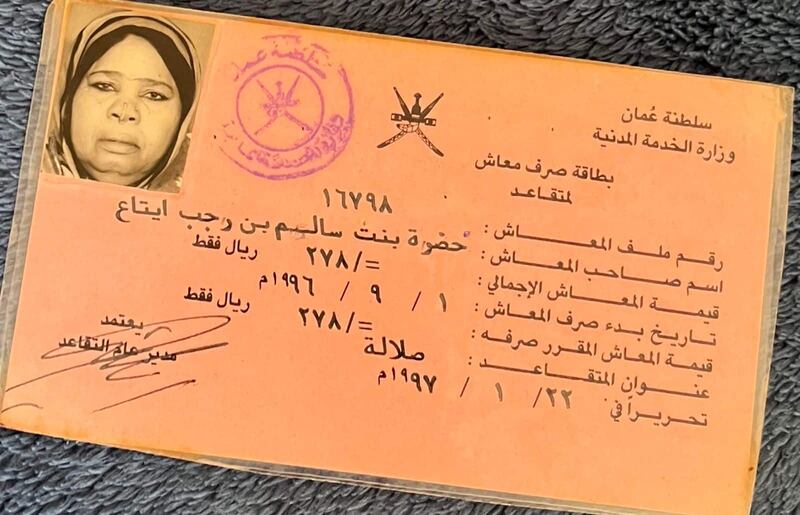 سلطنة عُمان
وزارة الخدمة المدنية
بطاقة صرف معاش
لمتقاعد
رقم ملف المعاش : ١٦٧٩٨
اسم صاحب المعاش : حضرة بنت سالم بن رجب ايتاع
قيمة المعاش الإجمالي : =/٢٧٨ ريال فقط
تاريخ بدء صرف المعاش : ١ / ٩ / ١٩٩٦م
قيمة المعاش المقرر صرفه : =/٢٧٨ ريال فقط
عنوان المتقاعد : صلالة
تحريراً في : ٢٢ / ١ / ١٩٩٧م
يعتمد
مدير عام التقاعد
سلطنة عمان